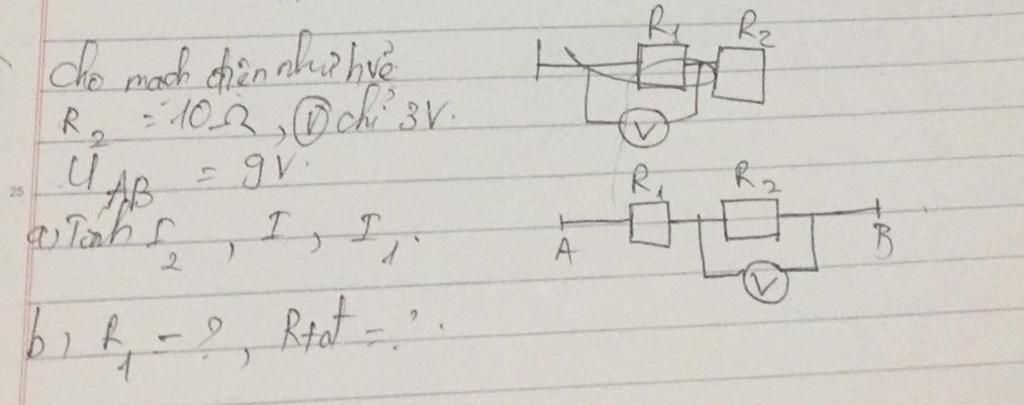 Cho mạch điện như hvẽ
R₂ = 10Ω, Ⓥ chỉ 3V.
U_AB = 9V.
a) Tính I₂, I, I₁.
b) R₁ = ?, Rtđ = ?.
R₁ R₂
V
R₁ R₂
A B
V
25